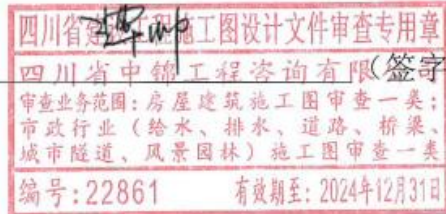 四川省建设工程施工图设计文件审查专用章
四川省中锦工程咨询有限
(签字
审查业务范围:房屋建筑施工图审查一类;
市政行业(给水、排水、道路、桥梁、
城市隧道、风景园林)施工图审查一类
编号:22861 有效期至:2024年12月31日